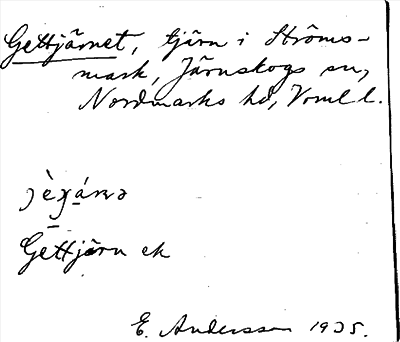 Gettjärnet, tjärn i Ströms-
mark, Järnskogs sn,
Nordmarks hd, Vrml l.
Gettjärn ek
E. Andersson 1935.